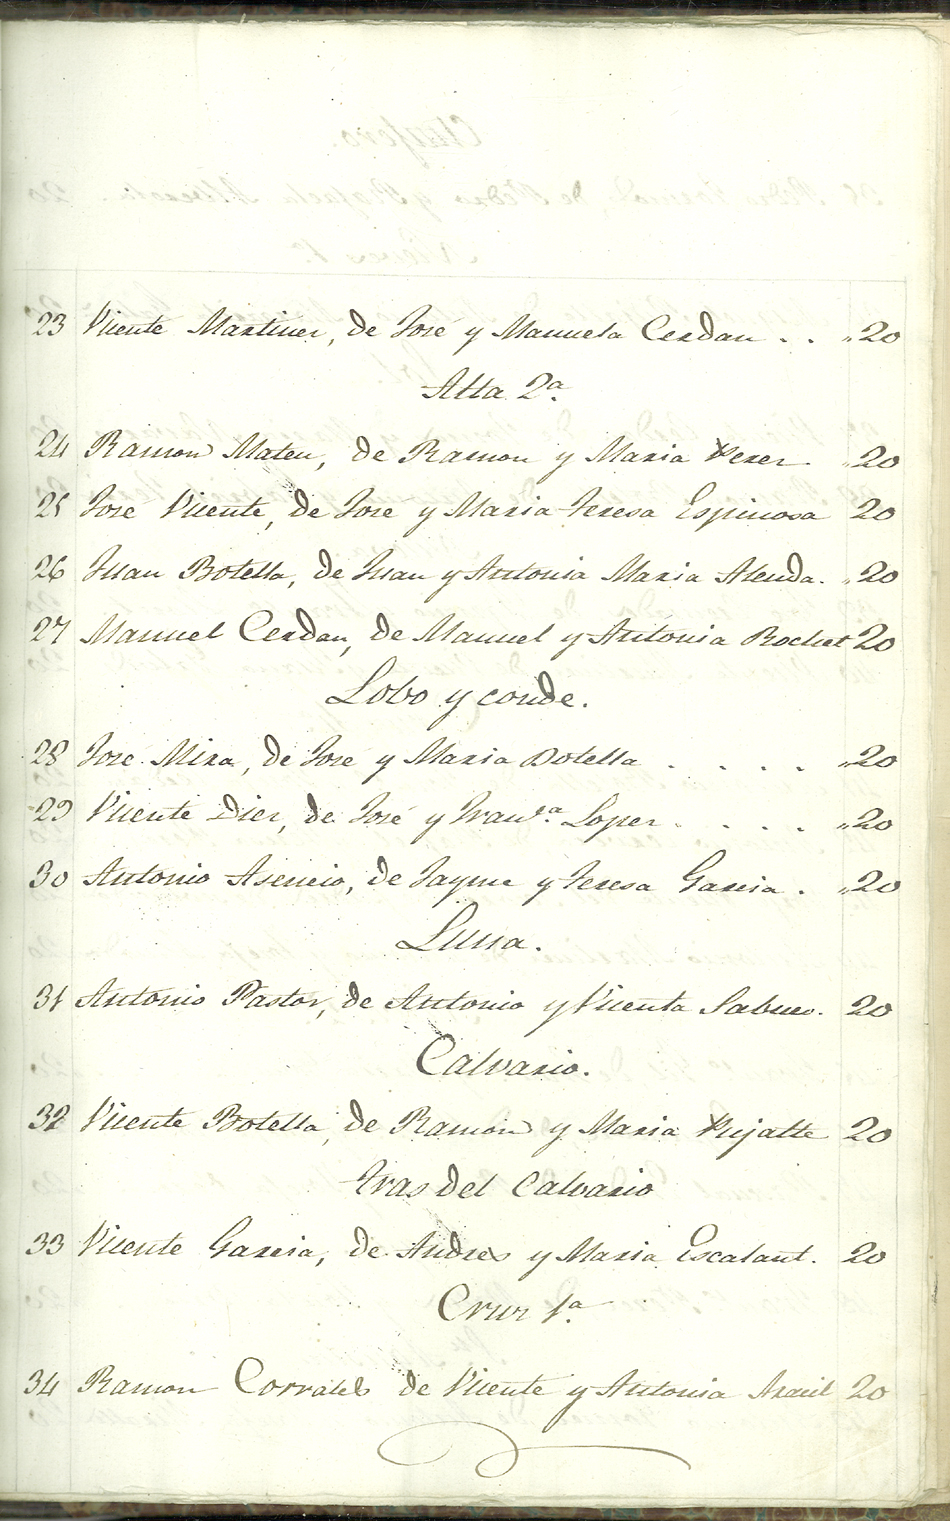 23 Vicente Martinez, de José y Manuela Cerdan . . „20
Alta 2ª
24 Ramon Mateu, de Ramon y Maria Perez. „20
25 José Vicente, de José y Maria Teresa Espinosa 20
26 Juan Botella, de Juan y Antonia Maria Alenda. „20
27 Manuel Cerdan, de Manuel y Antonia Rochet 20
Lobo y conde.
28 José Mira, de José y Maria Botella . . . . „20
29 Vicente Diez, de José y Franca Lopez . . . . „20
30 Antonio Asencio, de Jayme y Teresa Garcia . „20
Luna.
31 Antonio Pastor, de Antonio y Vicenta Sabuco. 20
Calvario.
32 Vicente Botella, de Ramon y Maria Pujalte 20
Tras del Calvario
33 Vicente Garcia, de Andres y Maria Escalant. 20
Cruz 1ª
34 Ramon Corrales de Vicente y Antonia 20